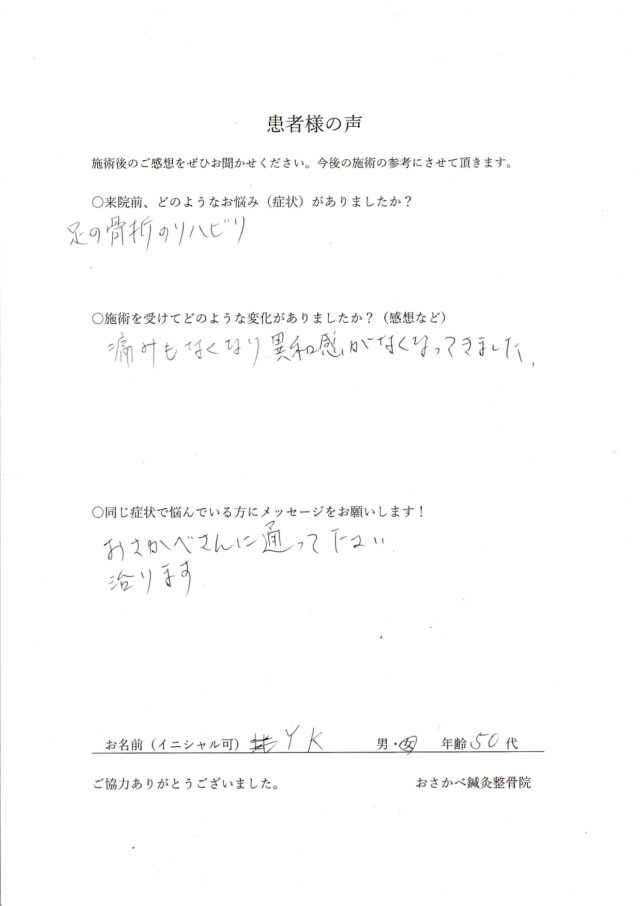 患者様の声
施術後のご感想をぜひお聞かせください。今後の施術の参考にさせて頂きます。
〇来院前、どのようなお悩み（症状）がありましたか？
足の骨折のリハビリ
〇施術を受けてどのような変化がありましたか？（感想など）
痛みもなくなり異和感がなくなってきました。
〇同じ症状で悩んでいる方にメッセージをお願いします！
おさかべさんに通って下さい
治ります
お名前（イニシャル可） Y.K 男・女 年齢 50 代
ご協力ありがとうございました。 おさかべ鍼灸整骨院